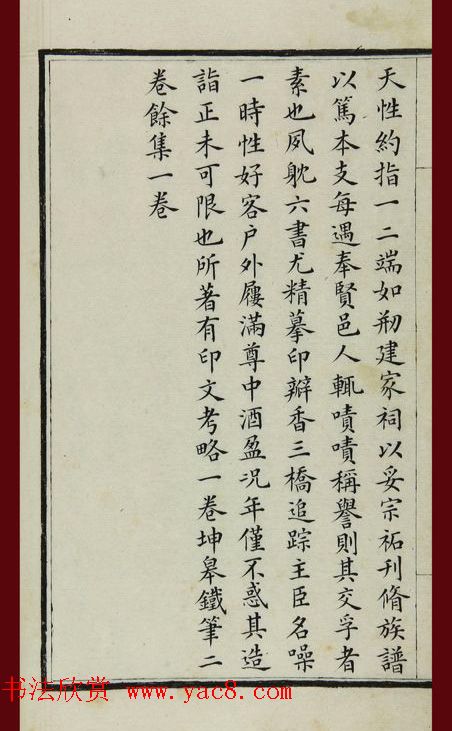 天性約指一二端如刱建家祠以妥宗祏刊脩族譜
以篤本支每遇奉賢邑人輒嘖嘖稱譽則其交孚者
素也夙躭六書尤精摹印瓣香三橋追踪主臣名噪
一時性好客户外屨滿尊中酒盈況年僅不惑其造
詣正未可限也所著有印文考略一卷坤皋鐵筆二
卷餘集一卷
书法欣赏 www.yac8.com